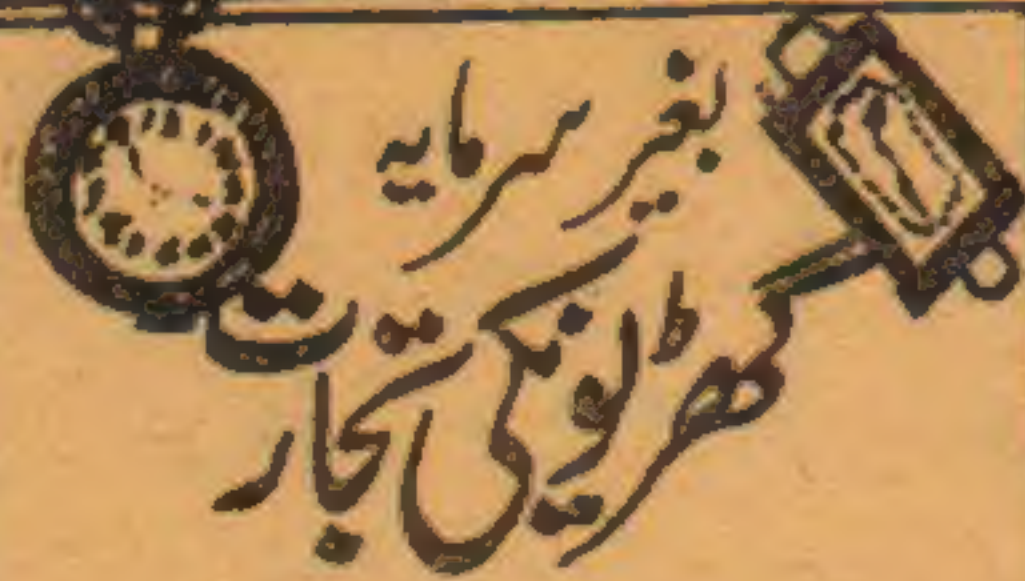 بغیر سرمایہ
گھڑیونکی تجارت